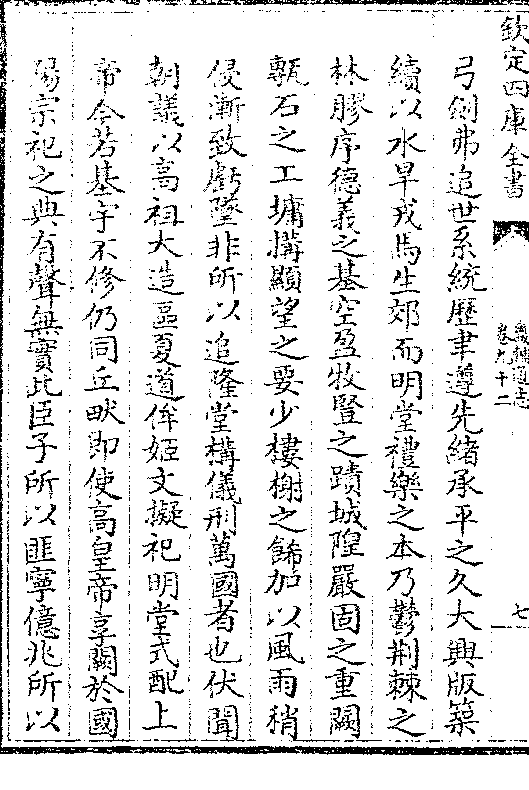 欽定四庫全書
畿輔通志
卷九十二
七
弓劍弗追世系統歷聿遵先緒承平之久大興版築
續以水旱戎馬生郊而明堂禮樂之本乃鬱荆棘之
林膠序德義之基空盈牧豎之蹟城隍嚴固之重闕
甎石之工墉搆顯望之要少樓榭之餙加以風雨稍
侵漸致虧墜非所以追隆堂構儀刑萬國者也伏聞
朝議以高祖大造區夏道侔姬文擬祀明堂式配上
帝今若基宇不修仍同丘畎即使高皇帝享闕於國
陽宗祀之典有聲無實此臣子所以匪寧億兆所以